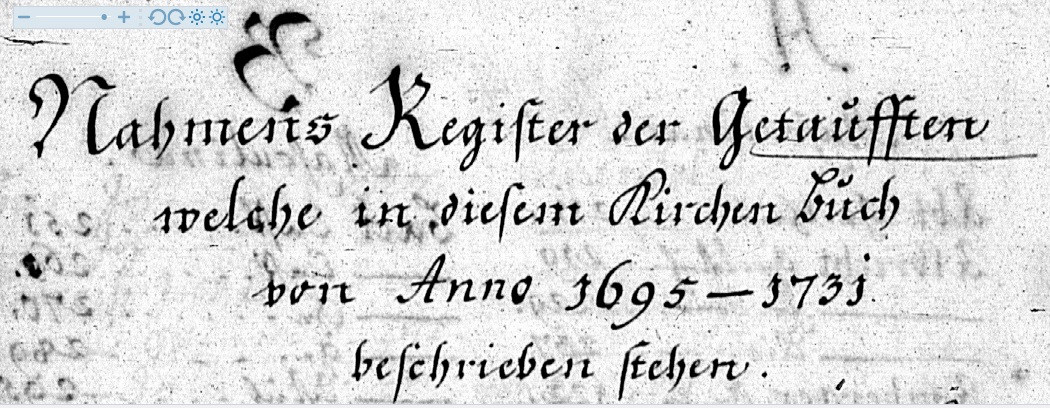 Nahmens Register der Getaufften
welche in diesem Kirchen buch
von Anno 1695 — 1731
beschrieben stehen.